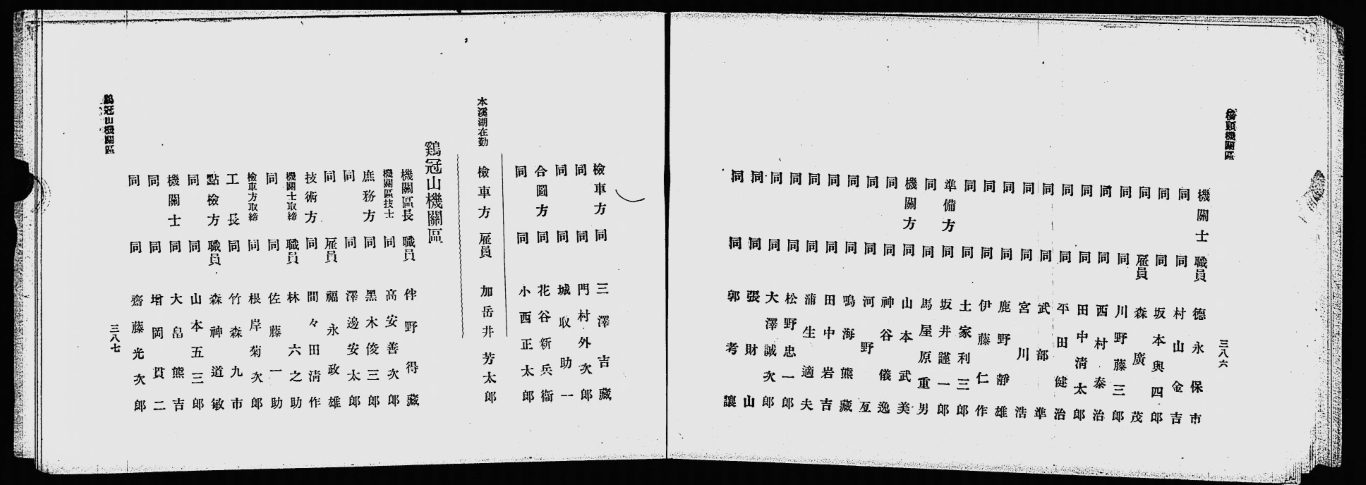 橋頭機關區
三八六
機關士 職員 德永保市
同 同 村山金吉
同 同 坂本與四郎
同 雇員 森廣茂
同 同 川野藤三郎
同 同 西村泰治
同 同 田中清太郎
同 同 平田健治
同 同 武部準
同 同 宮川浩
同 同 鹿野靜雄
同 同 伊藤仁作
同 同 土家利三郎
準備方 同 坂井謹一郎
同 同 馬屋原重男
機關方 同 山本武美
同 同 神谷儀逸
同 同 河野亙
同 同 鳴海熊藏
同 同 田中岩吉
同 同 蒲生適夫
同 同 松野忠一郎
同 同 大澤誠次郎
同 同 張財山
同 同 郭考讓
檢車方 同 三澤吉藏
同 同 門村外次郎
同 同 城取助一
合圖方 同 花谷新兵衞
同 同 小西正太郎
本溪湖在勤 檢車方 雇員 加岳井芳太郎
鷄冠山機關區
機關區長 職員 伴野得藏
機關區技士 同 高安善次郎
庶務方 同 黑木俊三郎
同 同 澤邊安太郎
同 雇員 福永政雄
技術方 同 間々田淸作
機關士取締 職員 林六之助
同 同 佐藤一助
檢車方取締 同 根岸菊次郎
工長 同 竹森九市
點檢方 職員 森神道敏
同 同 山本五三郎
機關士 同 大畠熊吉
同 同 增岡貫二
同 同 齋藤光次郎
鷄冠山機關區
三八七